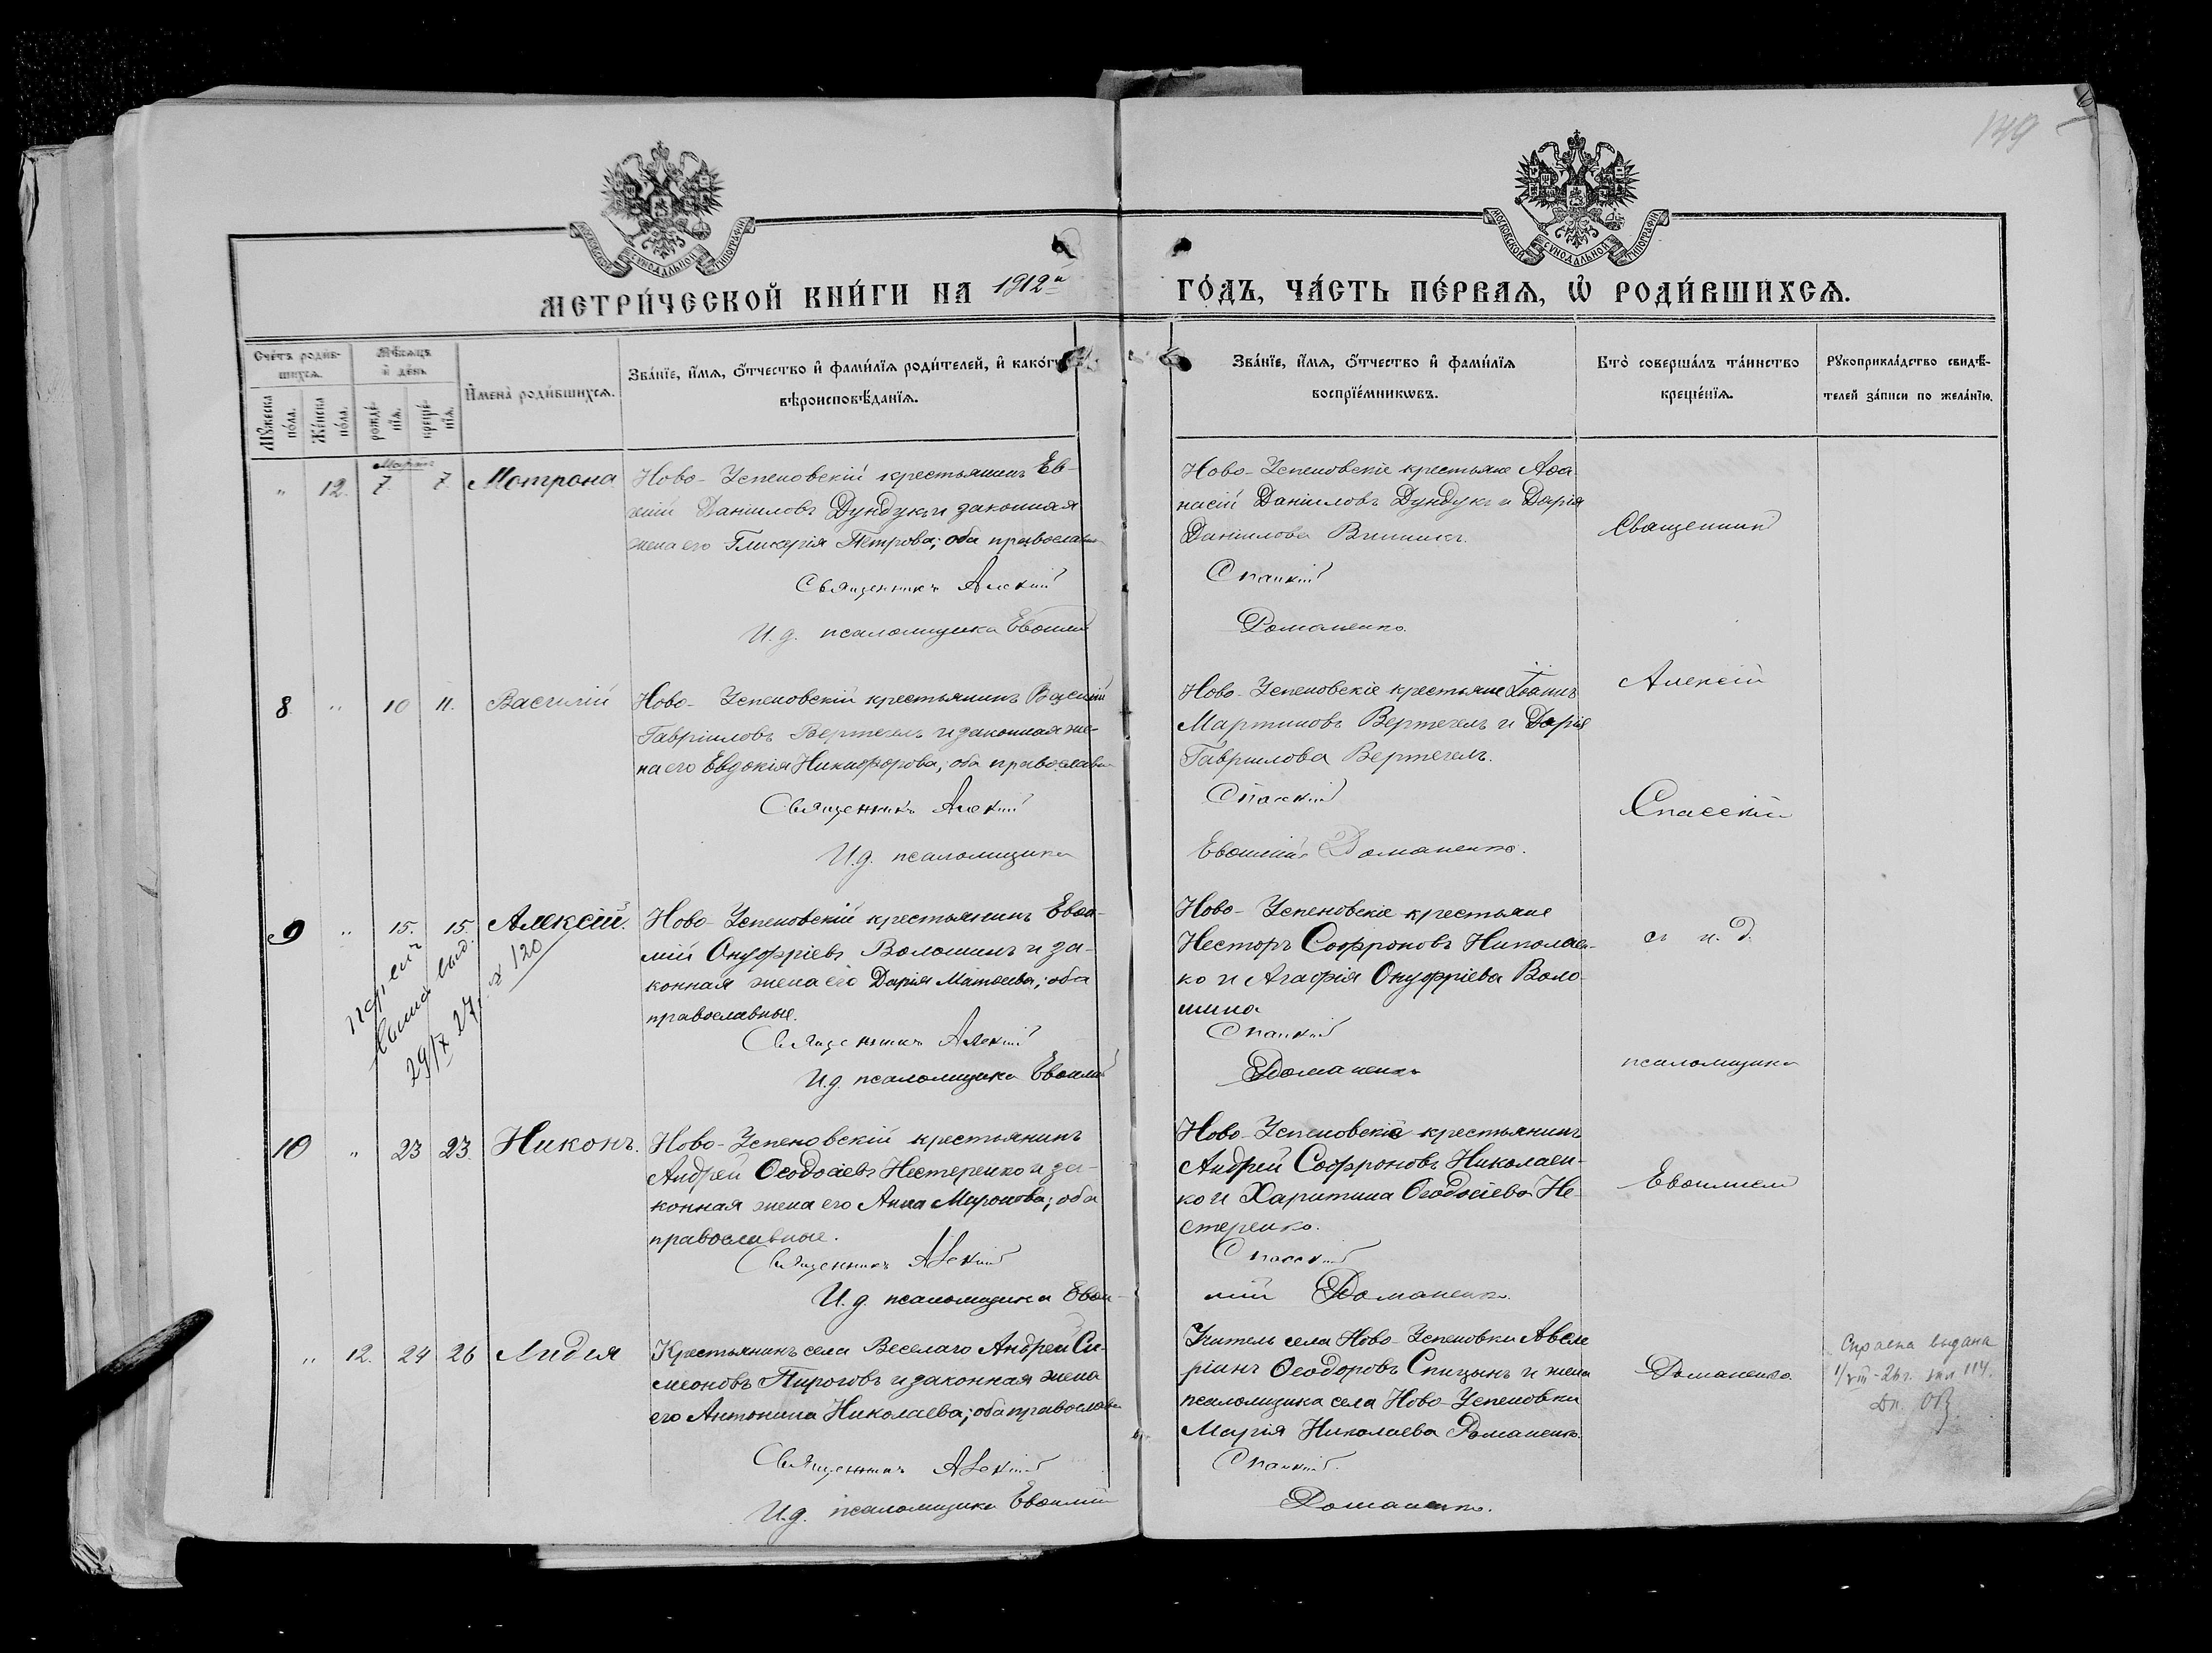 149
МОСКОВСКОЙ СУНОДАЛЬНОЙ ТИПОГРАФІИ
МОСКОВСКОЙ СУНОДАЛЬНОЙ ТИПОГРАФІИ
МЕТРИ́ЧЕСКОЙ КНИ́ГИ НА 1912й ГО́ДЪ, ЧА́СТЬ ПЕ́РВАѦ, Ѡ РОДИ́ВШИХСѦ.
Сче́тъ роди́в-
шихсѧ.
Мꙋ́жеска
по́ла.
Же́нска
по́ла.
Мѣ́сѧцъ
и҆ де́нь
рожде́-
нїѧ.
креще́-
нїѧ.
И҆мена̀ роди́вшихсѧ.
Зва́нїе, и҆́мѧ, ѻ҆́тчество и҆ фами́лїѧ роди́телей, и҆ како́гѡ
вѣроисповѣ́данїѧ.
Зва́нїе, и҆́мѧ, ѻ҆́тчество и҆ фами́лїѧ
воспрїе́мникѡвъ.
Кто̀ соверша́лъ та́инство
креще́нїѧ.
Рꙋкоприкла́дство свидѣ́-
телей за́писи по жела́нїю.
Мартъ
" 12. 7. 7. Мотрона
Ново-Успеновскій крестьянинъ Ев-
ѳимій Даніиловъ Дундукъ и законная
жена его Гликерія Петрова; оба православн
Священникъ Алекій
И. д. псаломщика Евѳимій
Ново-Успеновскіе крестьяне Аѳа-
насій Даніиловъ Дундукъ и Дарія
Даніилова
Спаскій
Доманенко.
Священникъ
8 " 10 11. Василій
Ново-Успеновскій крестьянинъ Василій
Гавріиловъ Вертегелъ и законная же-
на его Евдокія Никифорова; оба православн
Священникъ Алекій
И. д. псаломщика
Ново-Успеновскіе крестьяне Іоаннъ
Мартиновъ Вертегелъ и Дарія
Гавриилова Вертегелъ.
Спаскій
Евѳимій Доманенко.
Алексій
Спасскій
9 " 15. 15. Алексій.
выд.
29/IX 27 120
Ново-Успеновскій крестьянинъ Евѳи-
мій Онуфріевъ Волошинъ и за-
конная жена его Дарія Матѳеева; оба
православные.
Священникъ Алекій
И. д. псаломщика Евѳимій
Ново-Успеновскіе крестьяне
Несторъ Софроновъ Николаен-
ко и Агафія Онуфріева Воло-
шина
Спаскій
Доманенко
съ и. д.
псаломщика
10 " 23 23. Никонъ.
Ново-Успеновскій крестьянинъ
Андрей Ѳеодосіевъ Нестеренко и за-
конная жена его Анна Миронова; оба
православные.
Священникъ Алекій
И. д. псаломщика Евѳи-
Ново-Успеновскіе крестьянинъ
Андрей Софроновъ Николаен-
ко и Харитина Ѳеодосіева Не-
стеренко.
Спасскій
мій Доманенко.
Евѳиміемъ
" 12. 24 26 Лидія
Крестьянинъ села Веселаго Андрей Си-
меоновъ Пироговъ и законная жена
его Антонина Николаева; оба православн
Священникъ Алекій
И. д. псаломщика Евѳимій
Учитель села Ново-Успеновки Авеле
ріанъ Ѳеодоровъ Спицынъ и жена
псаломщика села Ново-Успеновки
Марія Николаева Доманенко.
Спаскій.
Доманенко.
Доманенко.
Справка выдана
1/VIII-26г. 114.